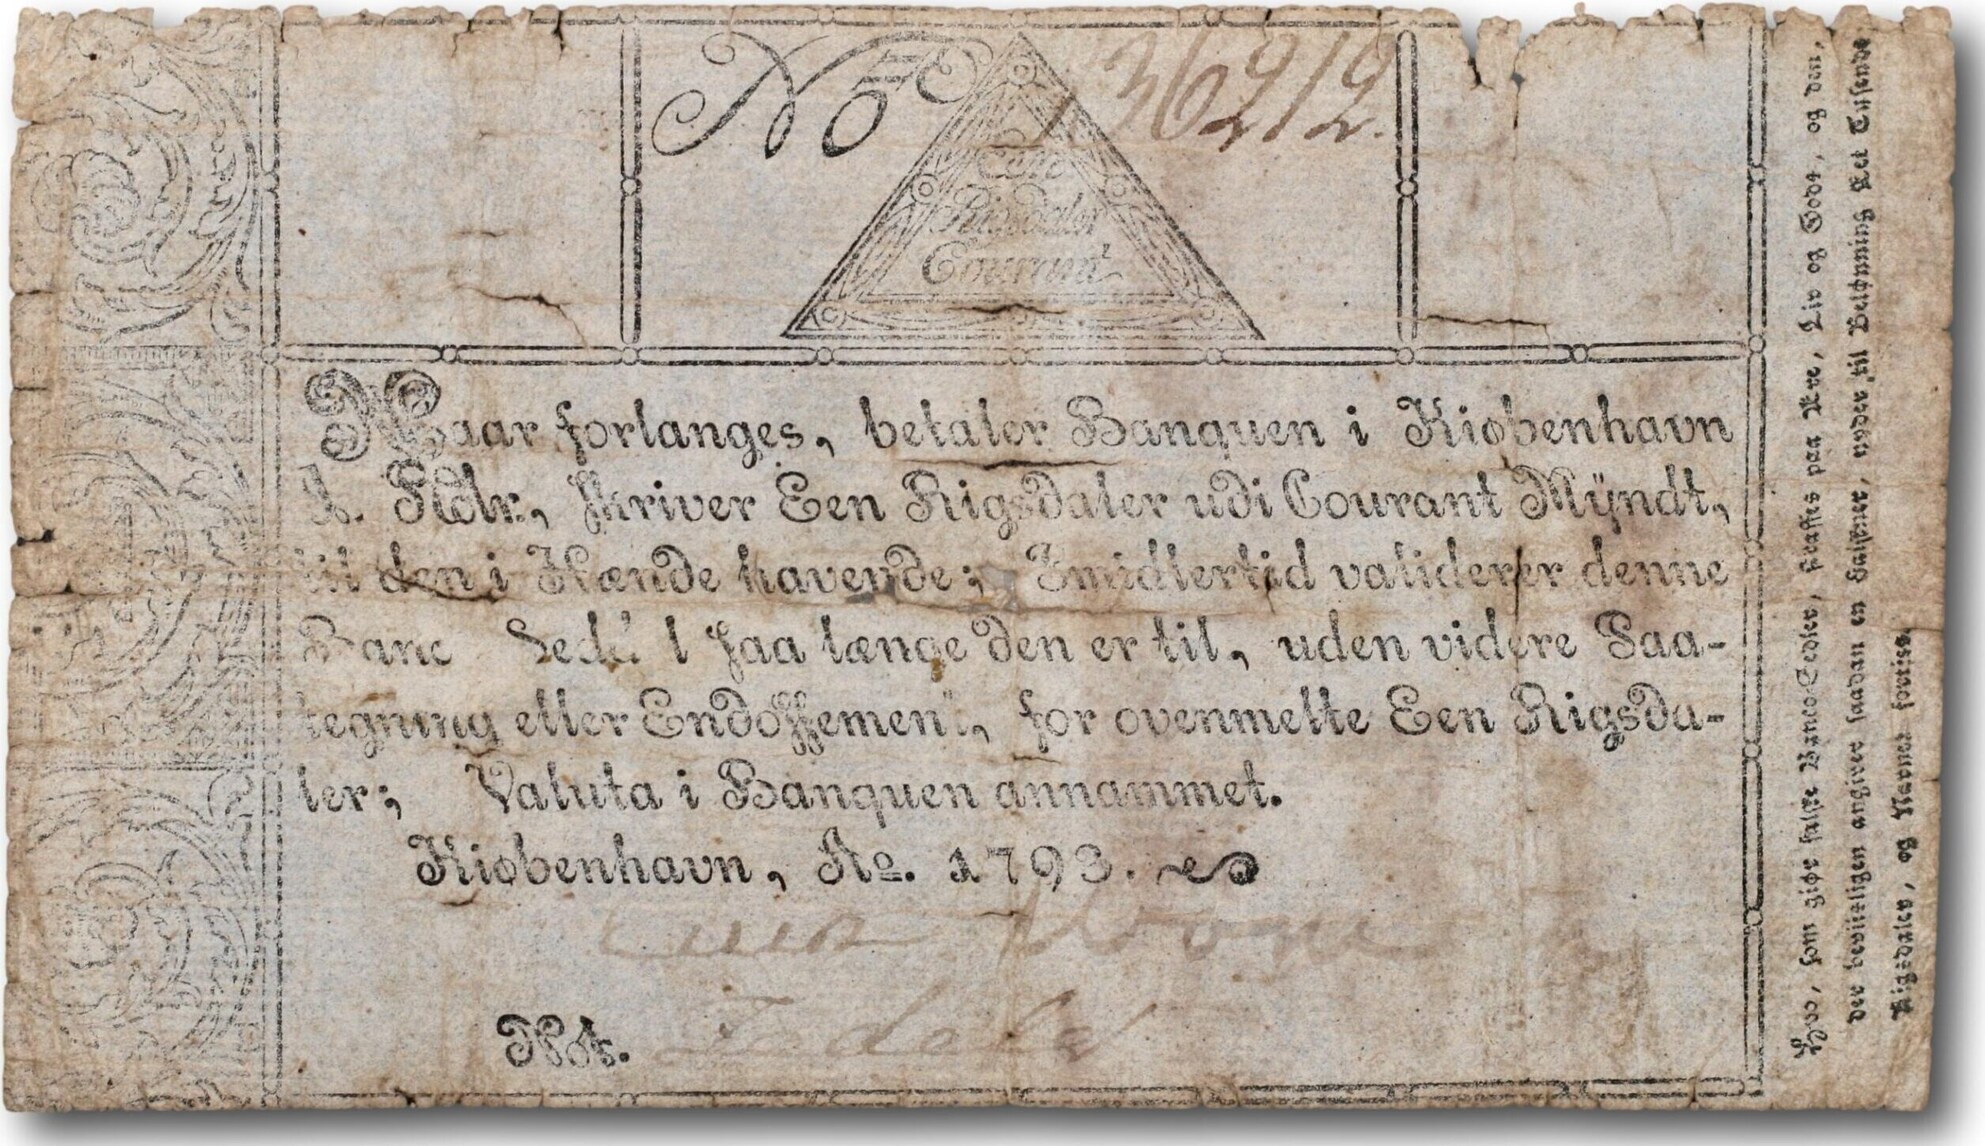 No 136212.
Een
Rigsdaler
Courant
Naar forlanges, betaler Banquen i Kiøbenhavn
1. Rdlr., skriver Een Rigsdaler udi Courant Mÿndt,
til den i Hænde havende; Imidlertid validerer denne
Banc Sedel saa længe den er til, uden videre Paa-
tegning eller Endossement, for ovenmelte Een Rigsda-
ler; Valuta i Banquen annammet.
Kiøbenhavn, Ao. 1793.
Not.
Hvo, som giør falske Banco-Sedler, straffes paa Ære, Liv og Gods, og den,
der beviisligen angiver saadan en Falskner, nyder, til Belønning Et Tusende
Rigsdaler, og Navnet forties.